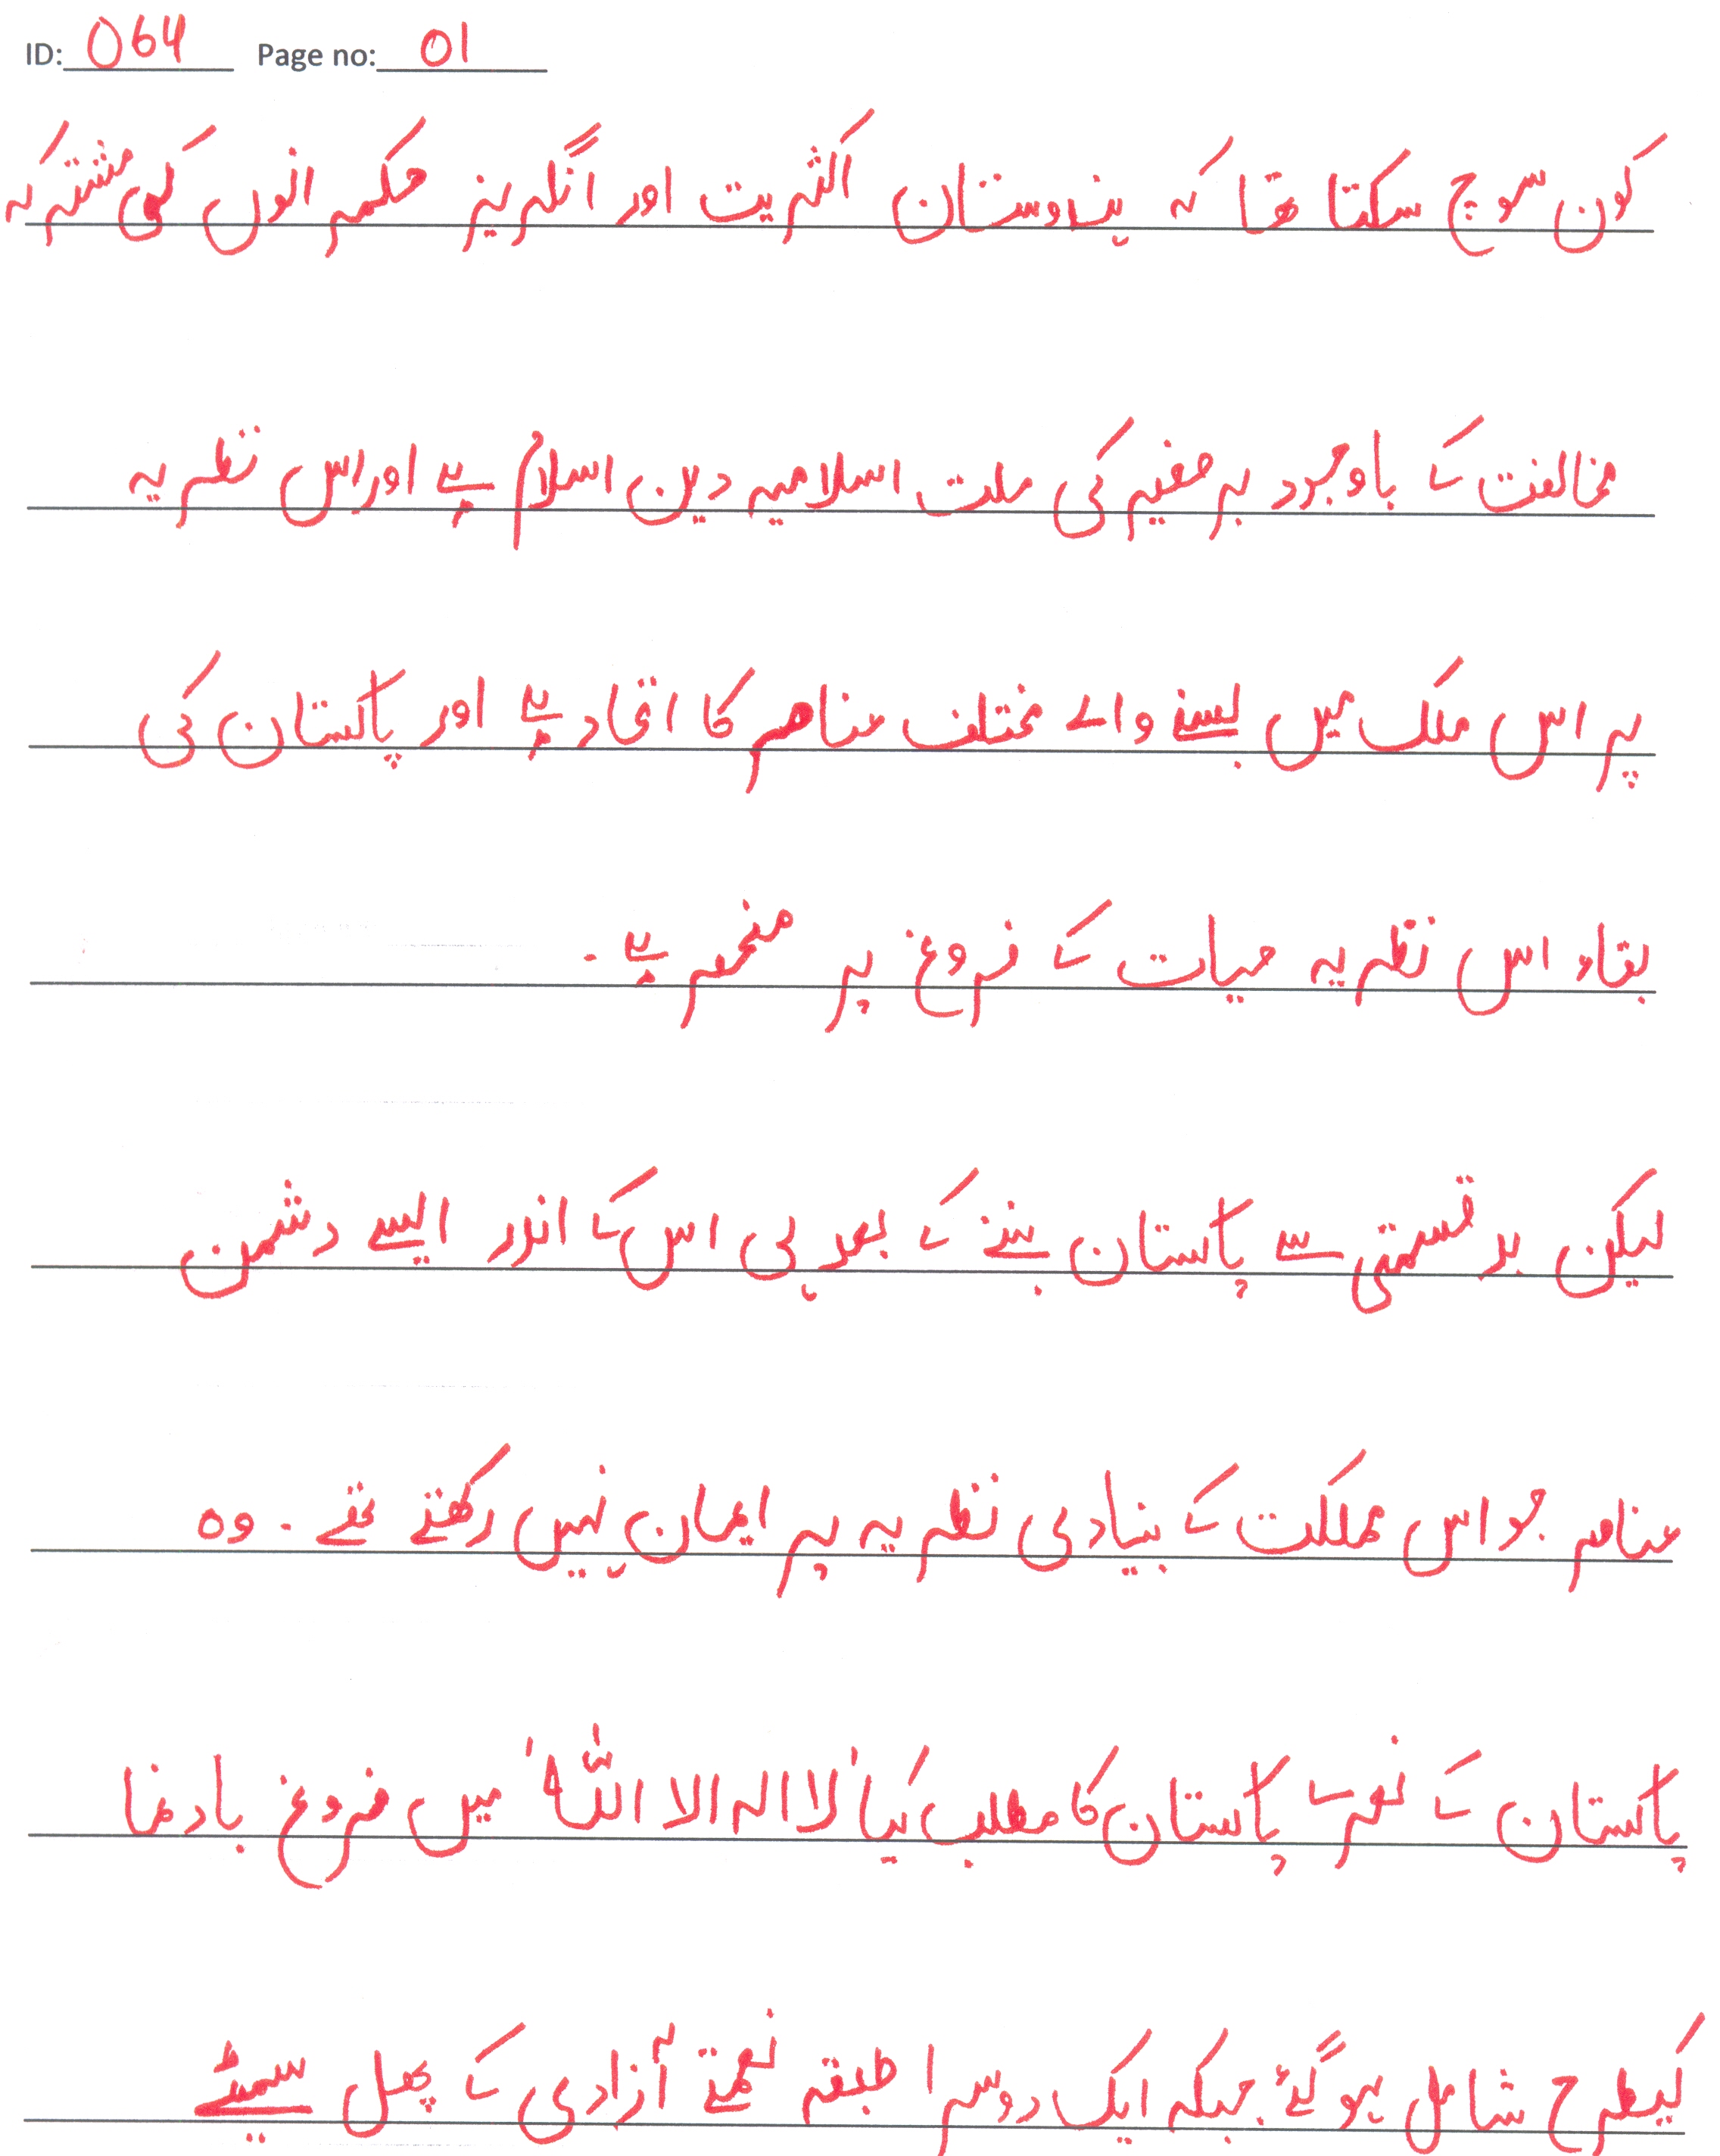 ID: 064 Page no: 01
کون سوچ سکتا تھا کہ ہندوستان اکثریت اور انگریز حکمرانوں کی مشترکہ
مخالفت کے باوجود برصغیر کی ملت اسلامیہ دین اسلام ہے اور اس نظریہ
پر اس ملک میں بسنے والے مختلف عناصر کا اتحاد ہے اور پاکستان کی
بقاء اس نظریہ حیات کے فروغ پر منحصر ہے۔
لیکن بدقسمتی سے پاکستان بننے کے بعد ہی اس کے اندر ایسے دشمن
عناصر جو اس مملکت کے بنیادی نظریہ پر ایمان نہیں رکھتے تھے۔ وہ
پاکستان کے نعرے پاکستان کا مطلب کیا 'لا الہ الا اللہ' میں فروغ باد
کیطرح شامل ہوگئے جبکہ ایک دوسرا طبقہ آزادی کے پھل سمیٹے